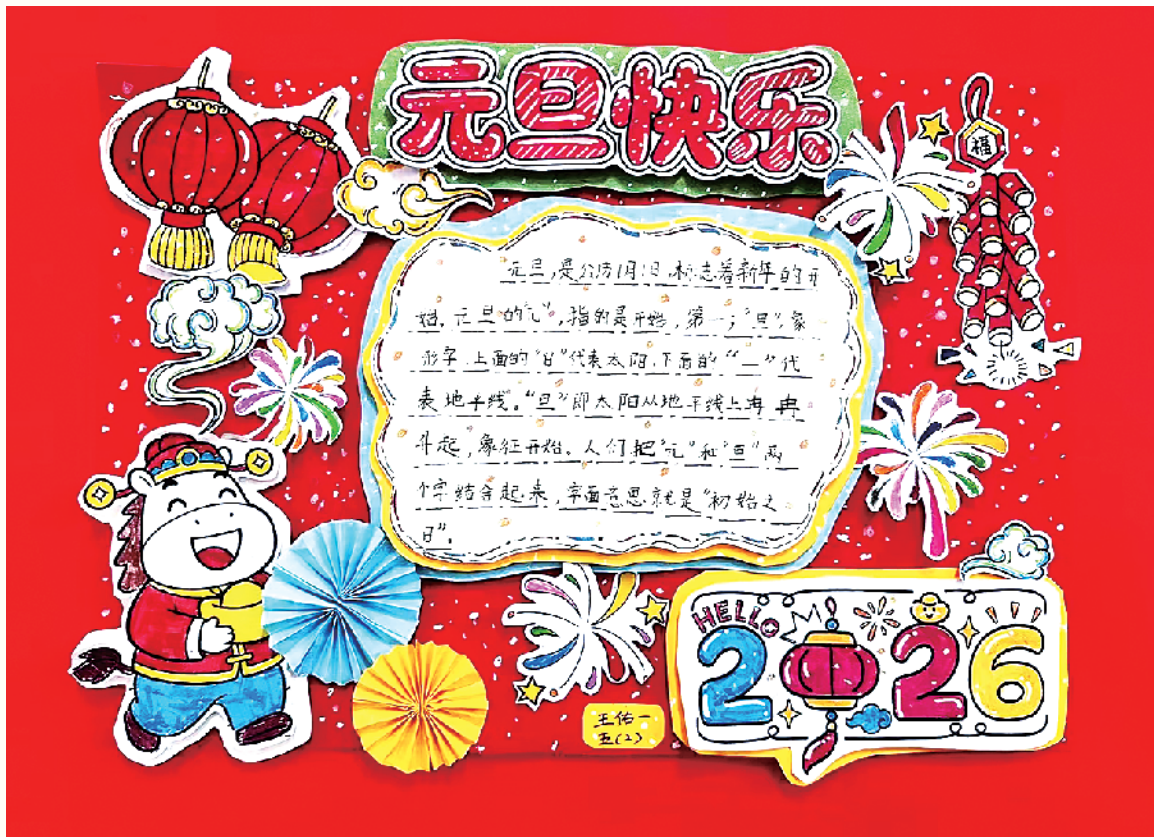 元旦快乐
福
元旦,是公历1月1日,标志着新年的开
始。元旦的“元”,指的是开始,第一;“旦”,象
形字,上面的“日”代表太阳,下面的“一”代
表地平线。“旦”即太阳从地平线上冉冉
升起,象征开始。人们把“元”和“旦”两
个字结合起来,字面意思就是“初始之
日”。
HELLO
2026
王佑一
五(2)